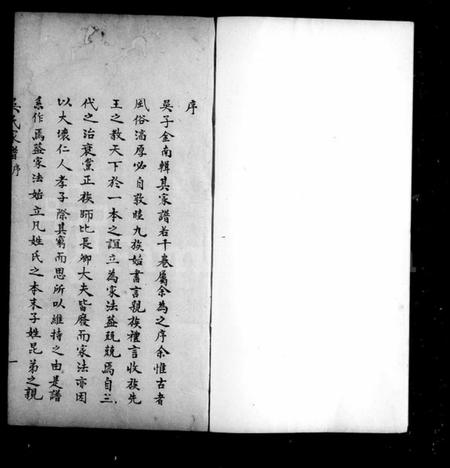 序
吳子金南輯其家譜若干卷屬余為之序余惟古者
風俗湻厚必自敦睦九族始書言親族禮言收族先
王之教天下於一本之誼立為家法益兢兢焉自三
代之治衰黨正族師比長鄉大夫皆廢而家法亦因
以大壞仁人孝子除其窮而思所以維持之由是譜
系作焉益家法始立凡姓氏之本末子姓昆弟之親
吳氏家譜 序 一